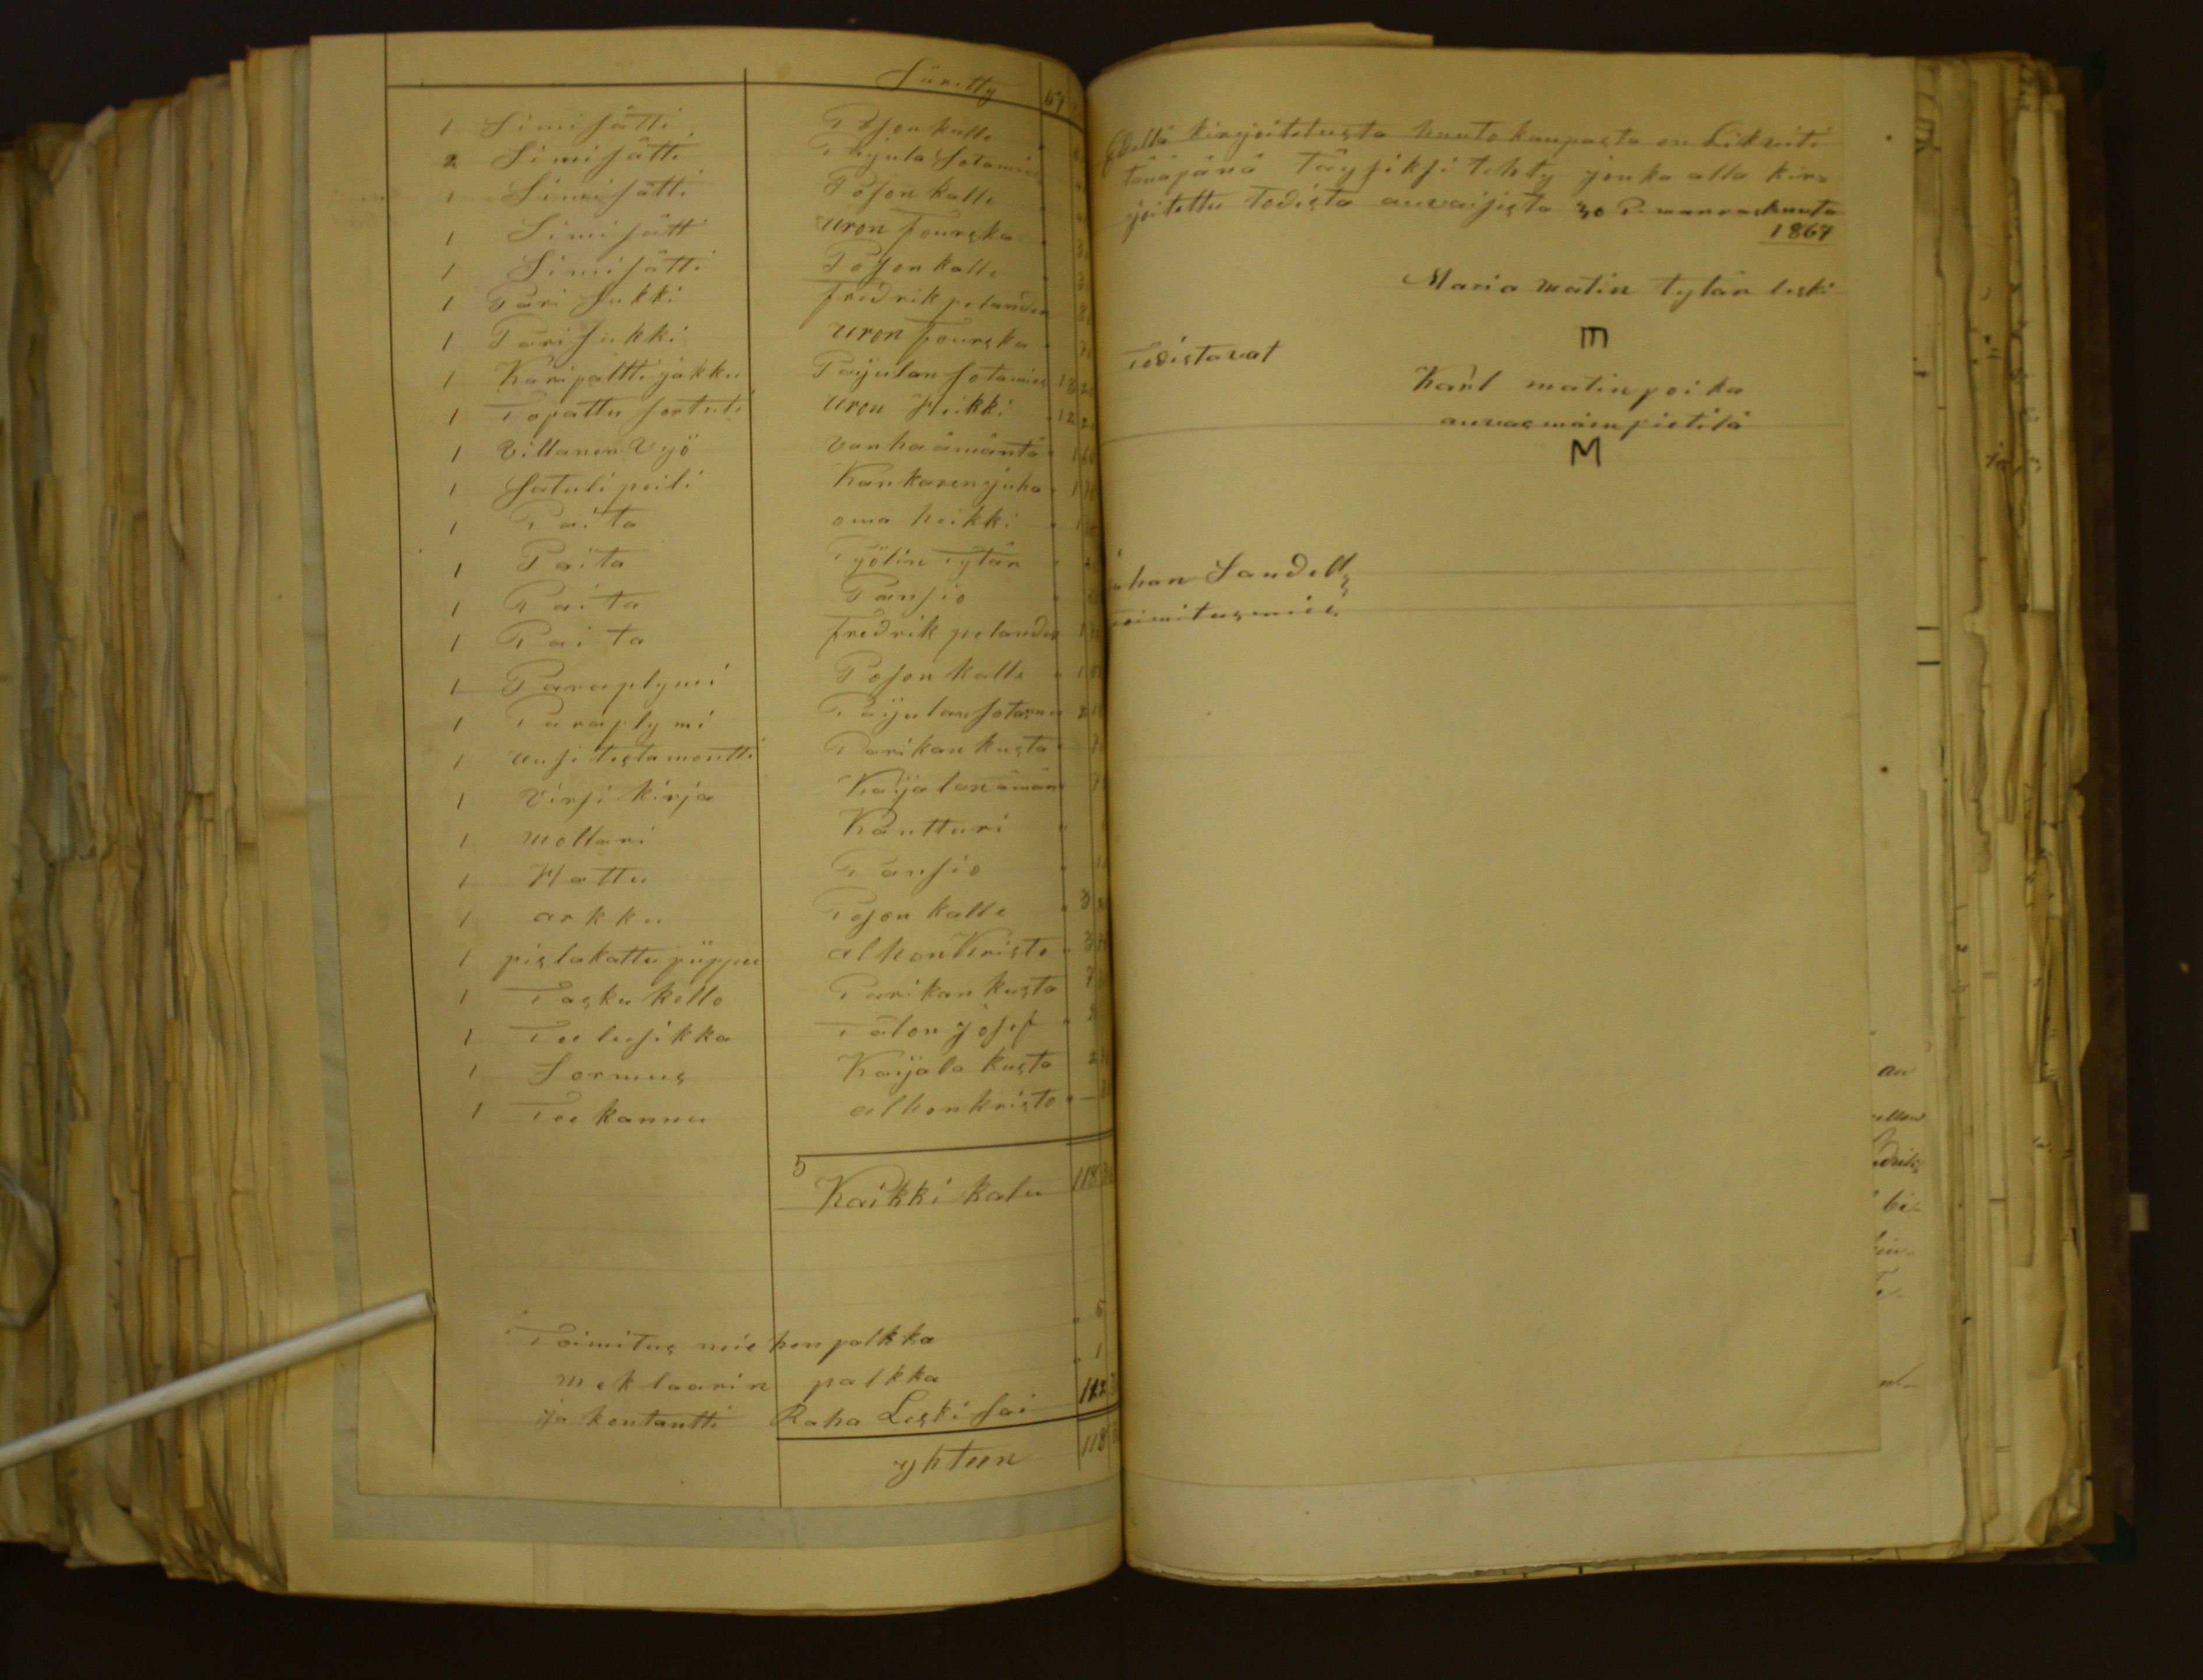 Siiretty 67
1 Simisätti Poson kalle
2 Simisätti Paijula Sotamies
1 Simisätti Poson kalle
1 Simisätt uron fourska 3
1 Simisätti Poson kalle 3
1 Pari sukki fredrik pelander
1 Pari sukki uron fourska
1 Karipaltti jakku Paijulan Sotamies 18
1 Topattu sortuti uron Heikki 12
1 Villanen Vyö vanhaämäntä
1 Satuli peili Kankaren juha 1
1 Paita oma heikki
1 Paita Työlin Tytär
1 Paita Pansio
1 Paita fredrik pelander
1 Paraplymi Poson kalle
1 Paraplymi Paijulan Sotamies
1 uusi testamentti Parikan kusta
1 Virsi kirja Kaijalan ämän
1 mollari Kantturi
1 Hattu Pansio
1 arkku Poson kalle 3
1 pislakattu piippu alhon Kristo 3
1 Tasku kello Parikan kusta 7
1 Tee lusikka Talon josef
1 Sormus Kaijala kusta 2
1 Tee kannu alhon kristo
Kaikki kalu 118
Toimitus miehen palkka 5
meklaarin palkka 1
ja kontantti Raha Leski sai 112
yhteen 118
Edellä kirjoitetusta huutokaupasta on Likviti
tänäpänä Täysiksi tehty jonka alla kira
joitettu Todista auvaisista 30 P. marraskuuta
1867
Maria matin tytär leski
E
Todistavat
Karl matinpoika
auvasmäenpietilä
M
han Sandell
toimitusmies